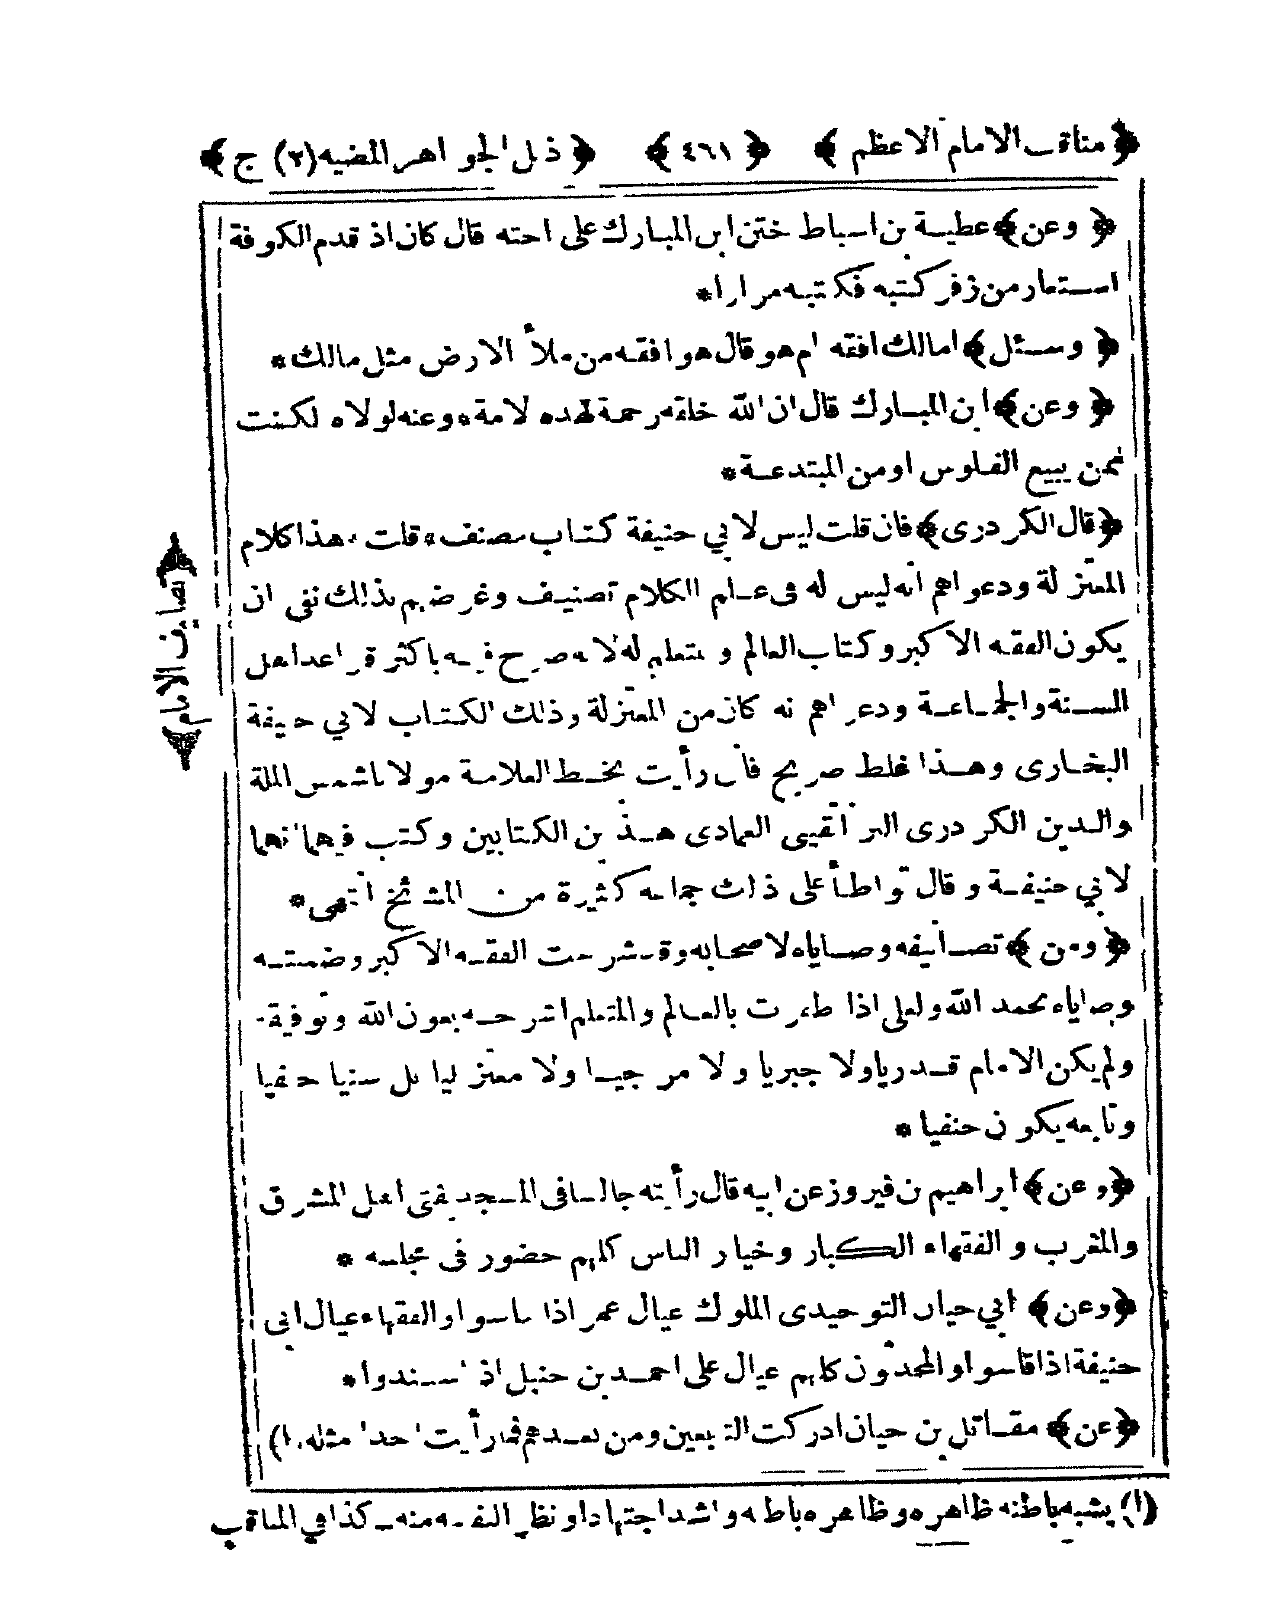 ﴿ مناقب الامام الاعظم ﴾ ﴿ ٤٦١ ﴾ ﴿ ذيل الجواهر المضيه (٢) ج ﴾
﴿ وعن ﴾ عطية بن اسباط ختن ابن المبارك على اخته قال كان اذ قدم الكوفة
استعار من زفر كتبه فكتبه مرارا *
﴿ وسئل ﴾ امالك افقه ام هو قال هو افقه من ملأ الارض مثل مالك *
﴿ وعن ﴾ ابن المبارك قال ان الله خلقه رحمة لهذه لامة * وعنه لولاه لكنت
ممن يبيع الفلوس او من المبتدعة *
﴿ قال الكردرى ﴾ فان قلت ليس لابي حنيفة كتاب مصنف * قلت * هذا كلام
المعتزلة ودعواهم انه ليس له فى علم الكلام تصنيف وغرضهم بذلك نفى ان
يكون الفقه الاكبر وكتاب العالم و متعلم له لانه صرح فيه باكثر قواعد اهل
السنة والجماعة ودعواهم انه كان من المعتزلة وذلك الكتاب لابي حنيفة
البخارى وهذا غلط صريح فانى رأيت بخط العلامة مولانا شمس الملة
والدين الكردرى البراتقينى العمادى هذين الكتابين وكتب فيهما انهما
لابي حنيفة وقال تواطأ على ذلك جماعه كثيرة من المشائخ انتهى *
﴿ ومن ﴾ تصانيفه وصاياه لاصحابه وقد شرحت الفقه الاكبر وضمنته
وصاياه بحمد الله ولعلى اذا ظفرت بالعالم والمتعلم اشرحه بعون الله وتوفيقه
ولم يكن الامام قدريا ولا جبريا ولا مرجيا ولا معتزليا بل سنيا حنفيا
وتابعه يكون حنفيا *
﴿ وعن ﴾ ابراهيم بن فيروز عن ابيه قال رأيته جالسا فى المسجد يفتى اهل المشرق
والمغرب والفقهاء الكبار وخيار الناس كلهم حضور فى مجلسه *
﴿ وعن ﴾ ابي حيان التوحيدى الملوك عيال عمر اذا ساسوا والفقهاء عيال ابى
حنيفة اذا قاسوا والمحدثون كلهم عيال على احمد بن حنبل اذ اسندوا *
﴿ عن ﴾ مقاتل بن حيان ادركت التابعين ومن بعدهم فما رأيت احدا مثله (١)
(١) يشبه باطنه ظاهره وظاهره باطنه واشد اجتهادا ونظر النفسه منه كذا في المناقب
﴿ تصانيف الامام ﴾